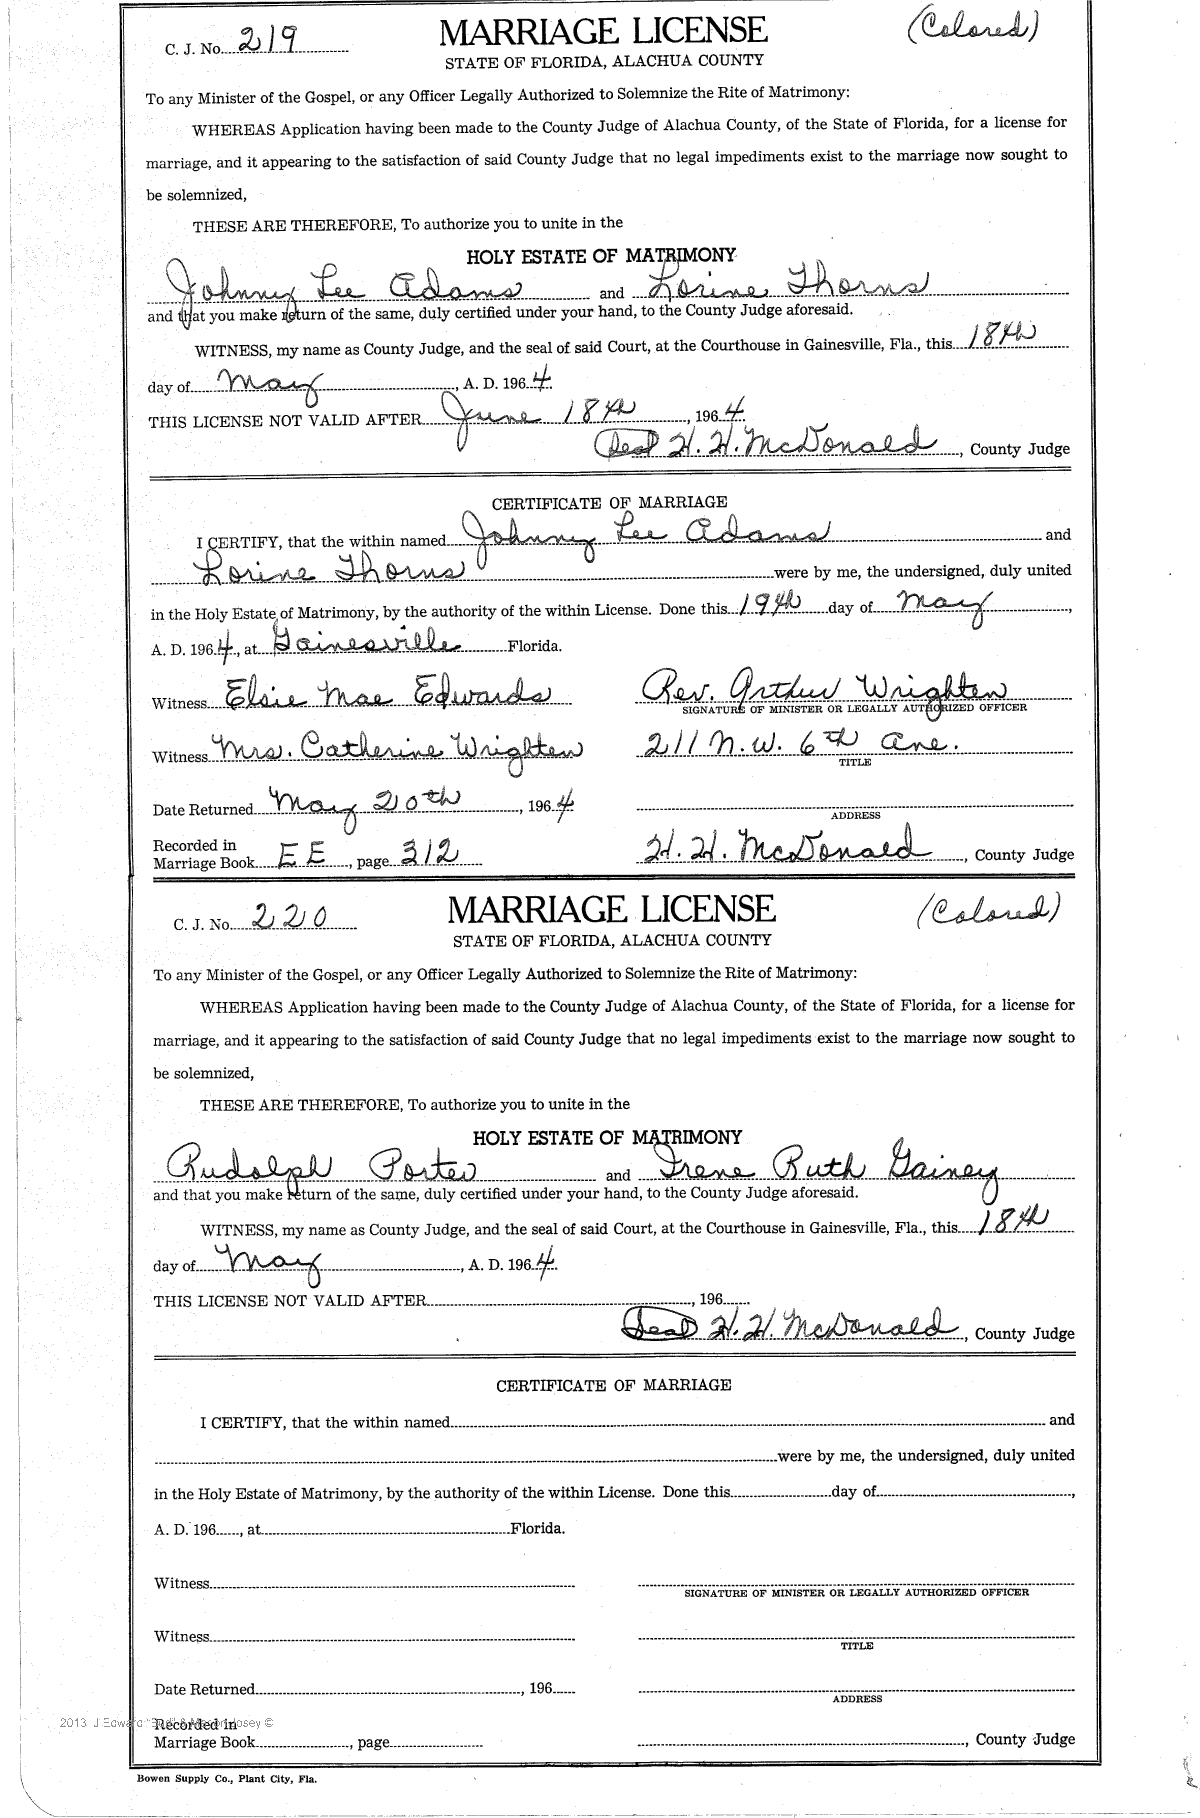 C. J. No. 219 MARRIAGE LICENSE (Colored)
STATE OF FLORIDA, ALACHUA COUNTY
To any Minister of the Gospel, or any Officer Legally Authorized to Solemnize the Rite of Matrimony:
WHEREAS Application having been made to the County Judge of Alachua County, of the State of Florida, for a license for
marriage, and it appearing to the satisfaction of said County Judge that no legal impediments exist to the marriage now sought to
be solemnized,
THESE ARE THEREFORE, To authorize you to unite in the
HOLY ESTATE OF MATRIMONY
Johnny Lee Adams and Lorine Thorns
and that you make return of the same, duly certified under your hand, to the County Judge aforesaid.
WITNESS, my name as County Judge, and the seal of said Court, at the Courthouse in Gainesville, Fla., this 18th
day of May, A. D. 1964.
THIS LICENSE NOT VALID AFTER June 18th, 1964.
(Seal) H. H. McDonald, County Judge
CERTIFICATE OF MARRIAGE
I CERTIFY, that the within named Johnny Lee Adams and
Lorine Thorns were by me, the undersigned, duly united
in the Holy Estate of Matrimony, by the authority of the within License. Done this 19th day of May,
A. D. 1964, at Gainesville Florida.
Witness Elsie Mae Edwards Rev. Arthur Wrighten
SIGNATURE OF MINISTER OR LEGALLY AUTHORIZED OFFICER
Witness Mrs. Catherine Wrighten 211 N. W. 6th Ave.
TITLE
Date Returned May 20th, 1964
ADDRESS
Recorded in
Marriage Book EE, page 312 H. H. McDonald, County Judge
C. J. No. 220 MARRIAGE LICENSE (Colored)
STATE OF FLORIDA, ALACHUA COUNTY
To any Minister of the Gospel, or any Officer Legally Authorized to Solemnize the Rite of Matrimony:
WHEREAS Application having been made to the County Judge of Alachua County, of the State of Florida, for a license for
marriage, and it appearing to the satisfaction of said County Judge that no legal impediments exist to the marriage now sought to
be solemnized,
THESE ARE THEREFORE, To authorize you to unite in the
HOLY ESTATE OF MATRIMONY
Rudolph Porter and Irene Ruth Gainey
and that you make return of the same, duly certified under your hand, to the County Judge aforesaid.
WITNESS, my name as County Judge, and the seal of said Court, at the Courthouse in Gainesville, Fla., this 18th
day of May, A. D. 1964.
THIS LICENSE NOT VALID AFTER, 196
(Seal) H. H. McDonald, County Judge
CERTIFICATE OF MARRIAGE
I CERTIFY, that the within named and
were by me, the undersigned, duly united
in the Holy Estate of Matrimony, by the authority of the within License. Done this day of,
A. D. 196, at Florida.
Witness
SIGNATURE OF MINISTER OR LEGALLY AUTHORIZED OFFICER
Witness
TITLE
Date Returned, 196
ADDRESS
2013 J Edward Josey ©
Recorded in
Marriage Book, page, County Judge
Bowen Supply Co., Plant City, Fla.